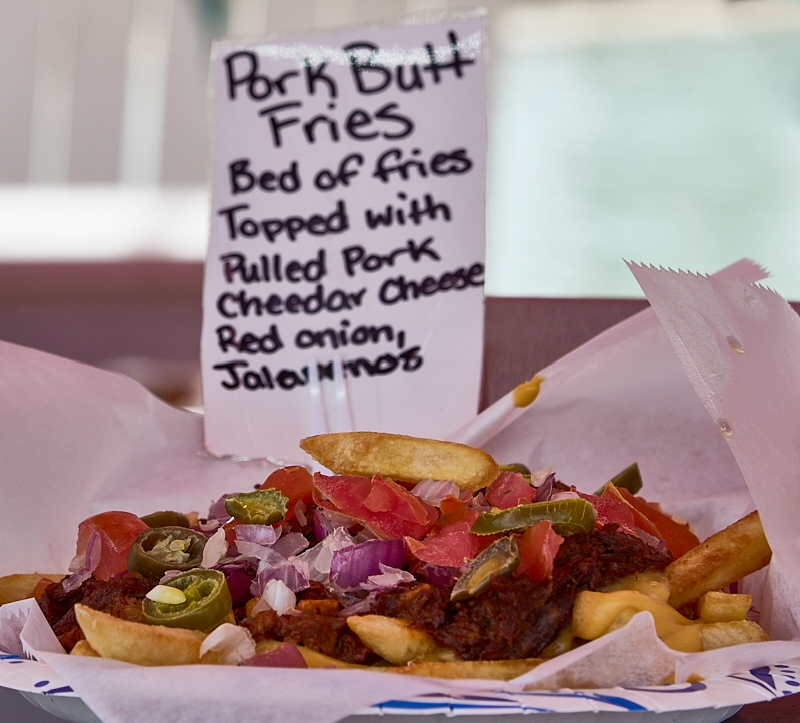 Pork Butt
Fries
Bed of fries
Topped with
Pulled Pork
Cheedar Cheese
Red onion,